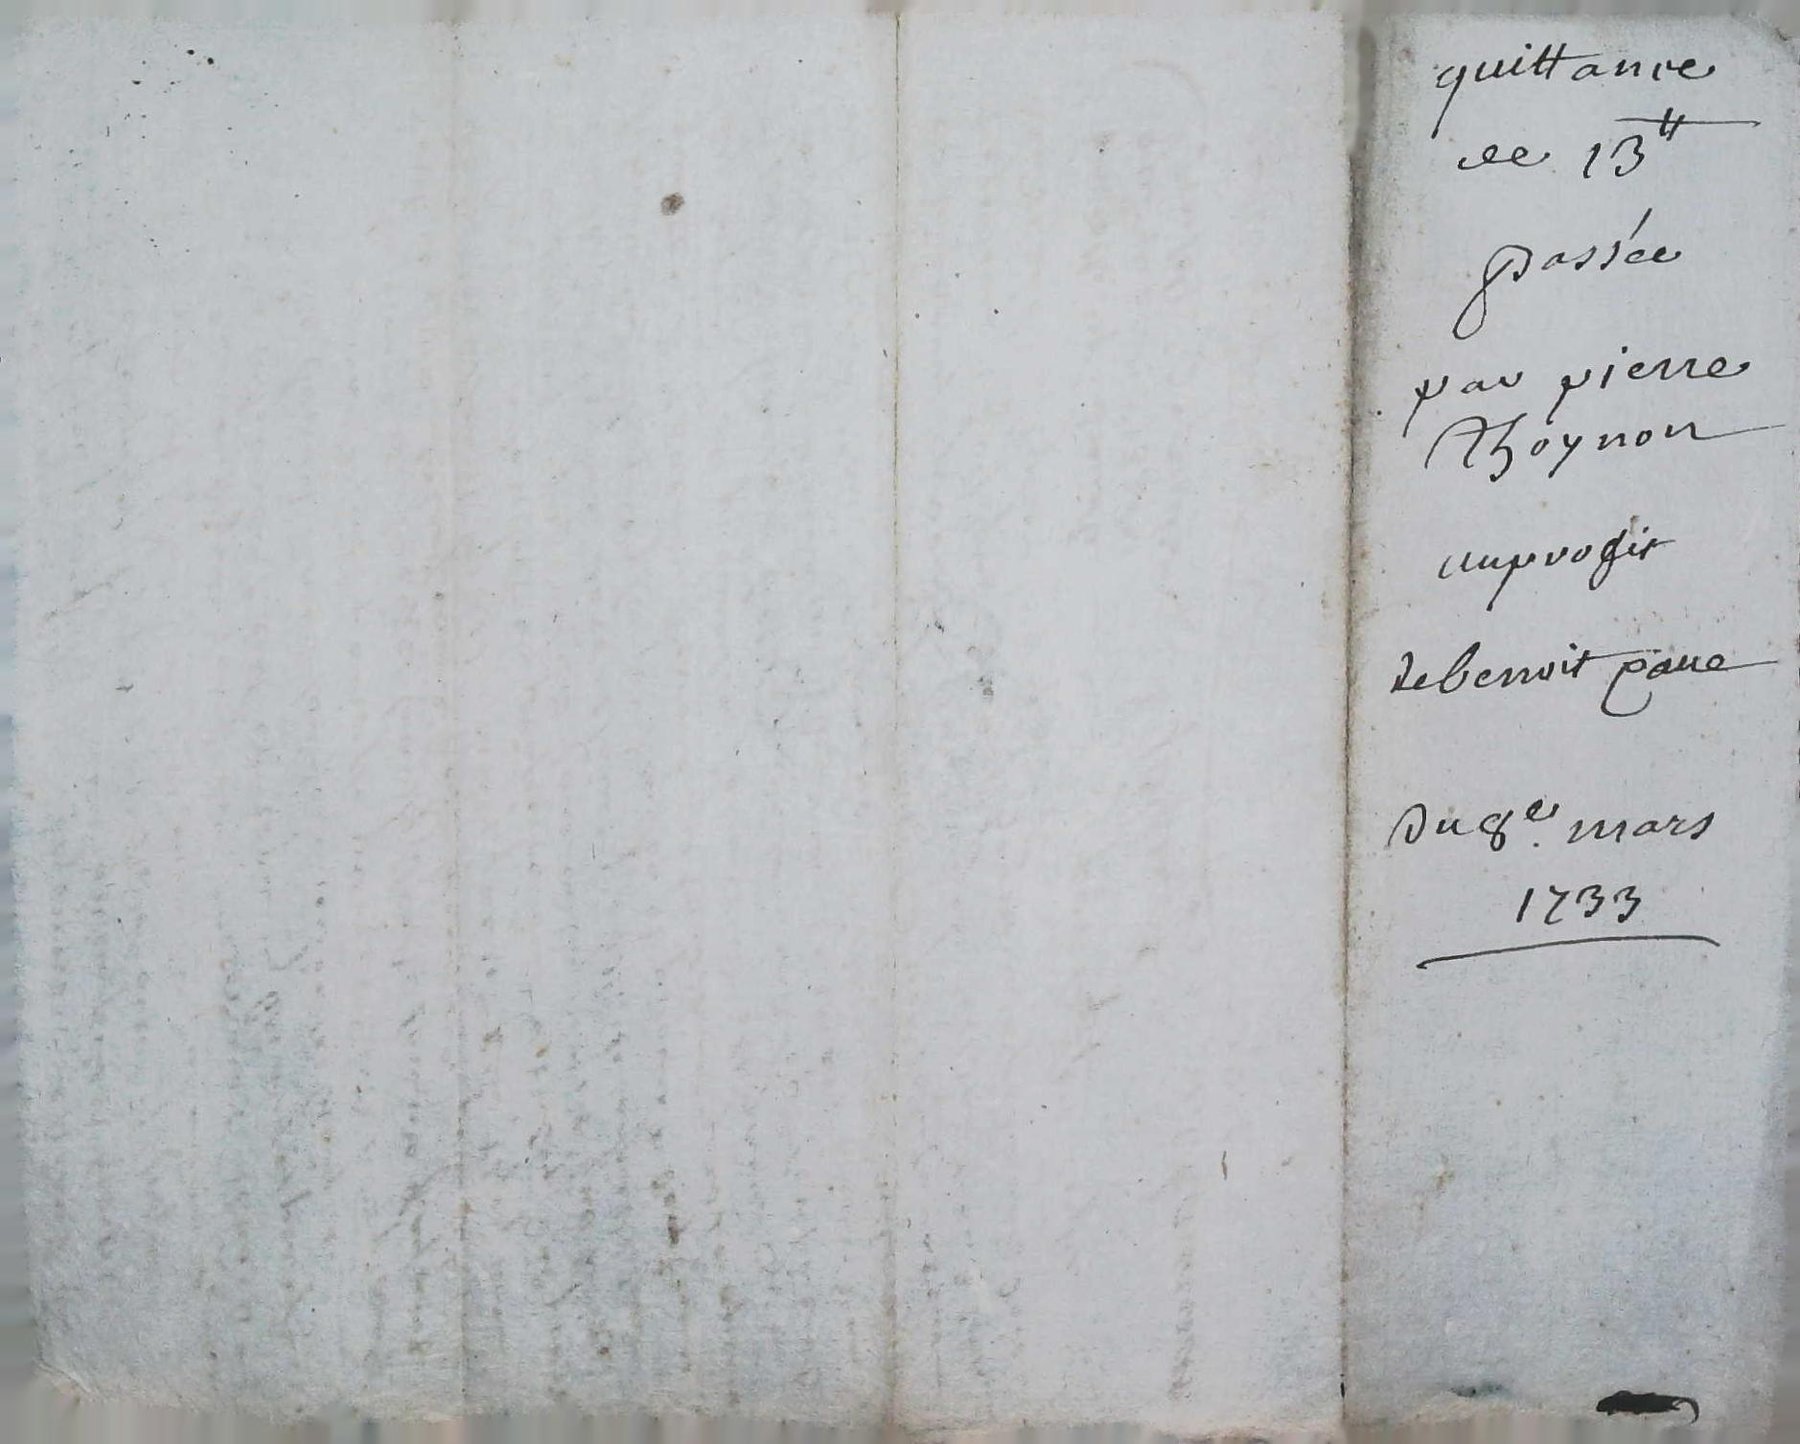 quittance
de 13ᵗᵗ
passée
par pierre
Thoynon
au profit
de benoit paue
Du 8ᵉ. mars
1733